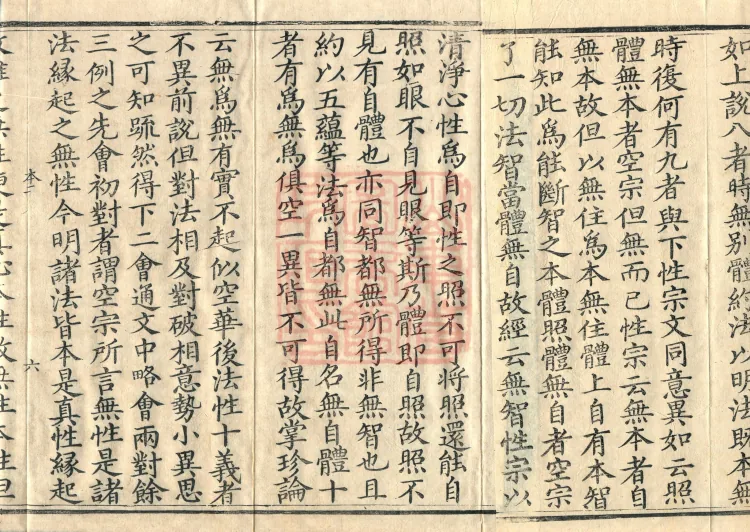 如上說八者時無別體終法以明法既本無
時復何有九者與下性宗文同意異如云照
體無本者空宗但無而已性宗云無本者自
無本故但以無住為本無住體上自有本智
能知此為能斷智之本體照體無自者空宗
了一切法智當體無自故經云無智性宗以
清淨心性為自即性之照不可將照還能自
照如眼不自見眼等斯乃體即自照故照不
見有自體也亦同智都無所得非無智也且
約以五蘊等法為自都無此自名無自體十
者有為無為俱空一異皆不可得故掌珍論
云無為無有實不起似空華後法性十義者
不異前說但對法相及對破相意勢小異思
之可知䟽然得下二會通文中略會兩對餘
三例之先會初對者謂空宗所言無性是諸
法緣起之無性今明諸法皆本是真性緣起
本二
六